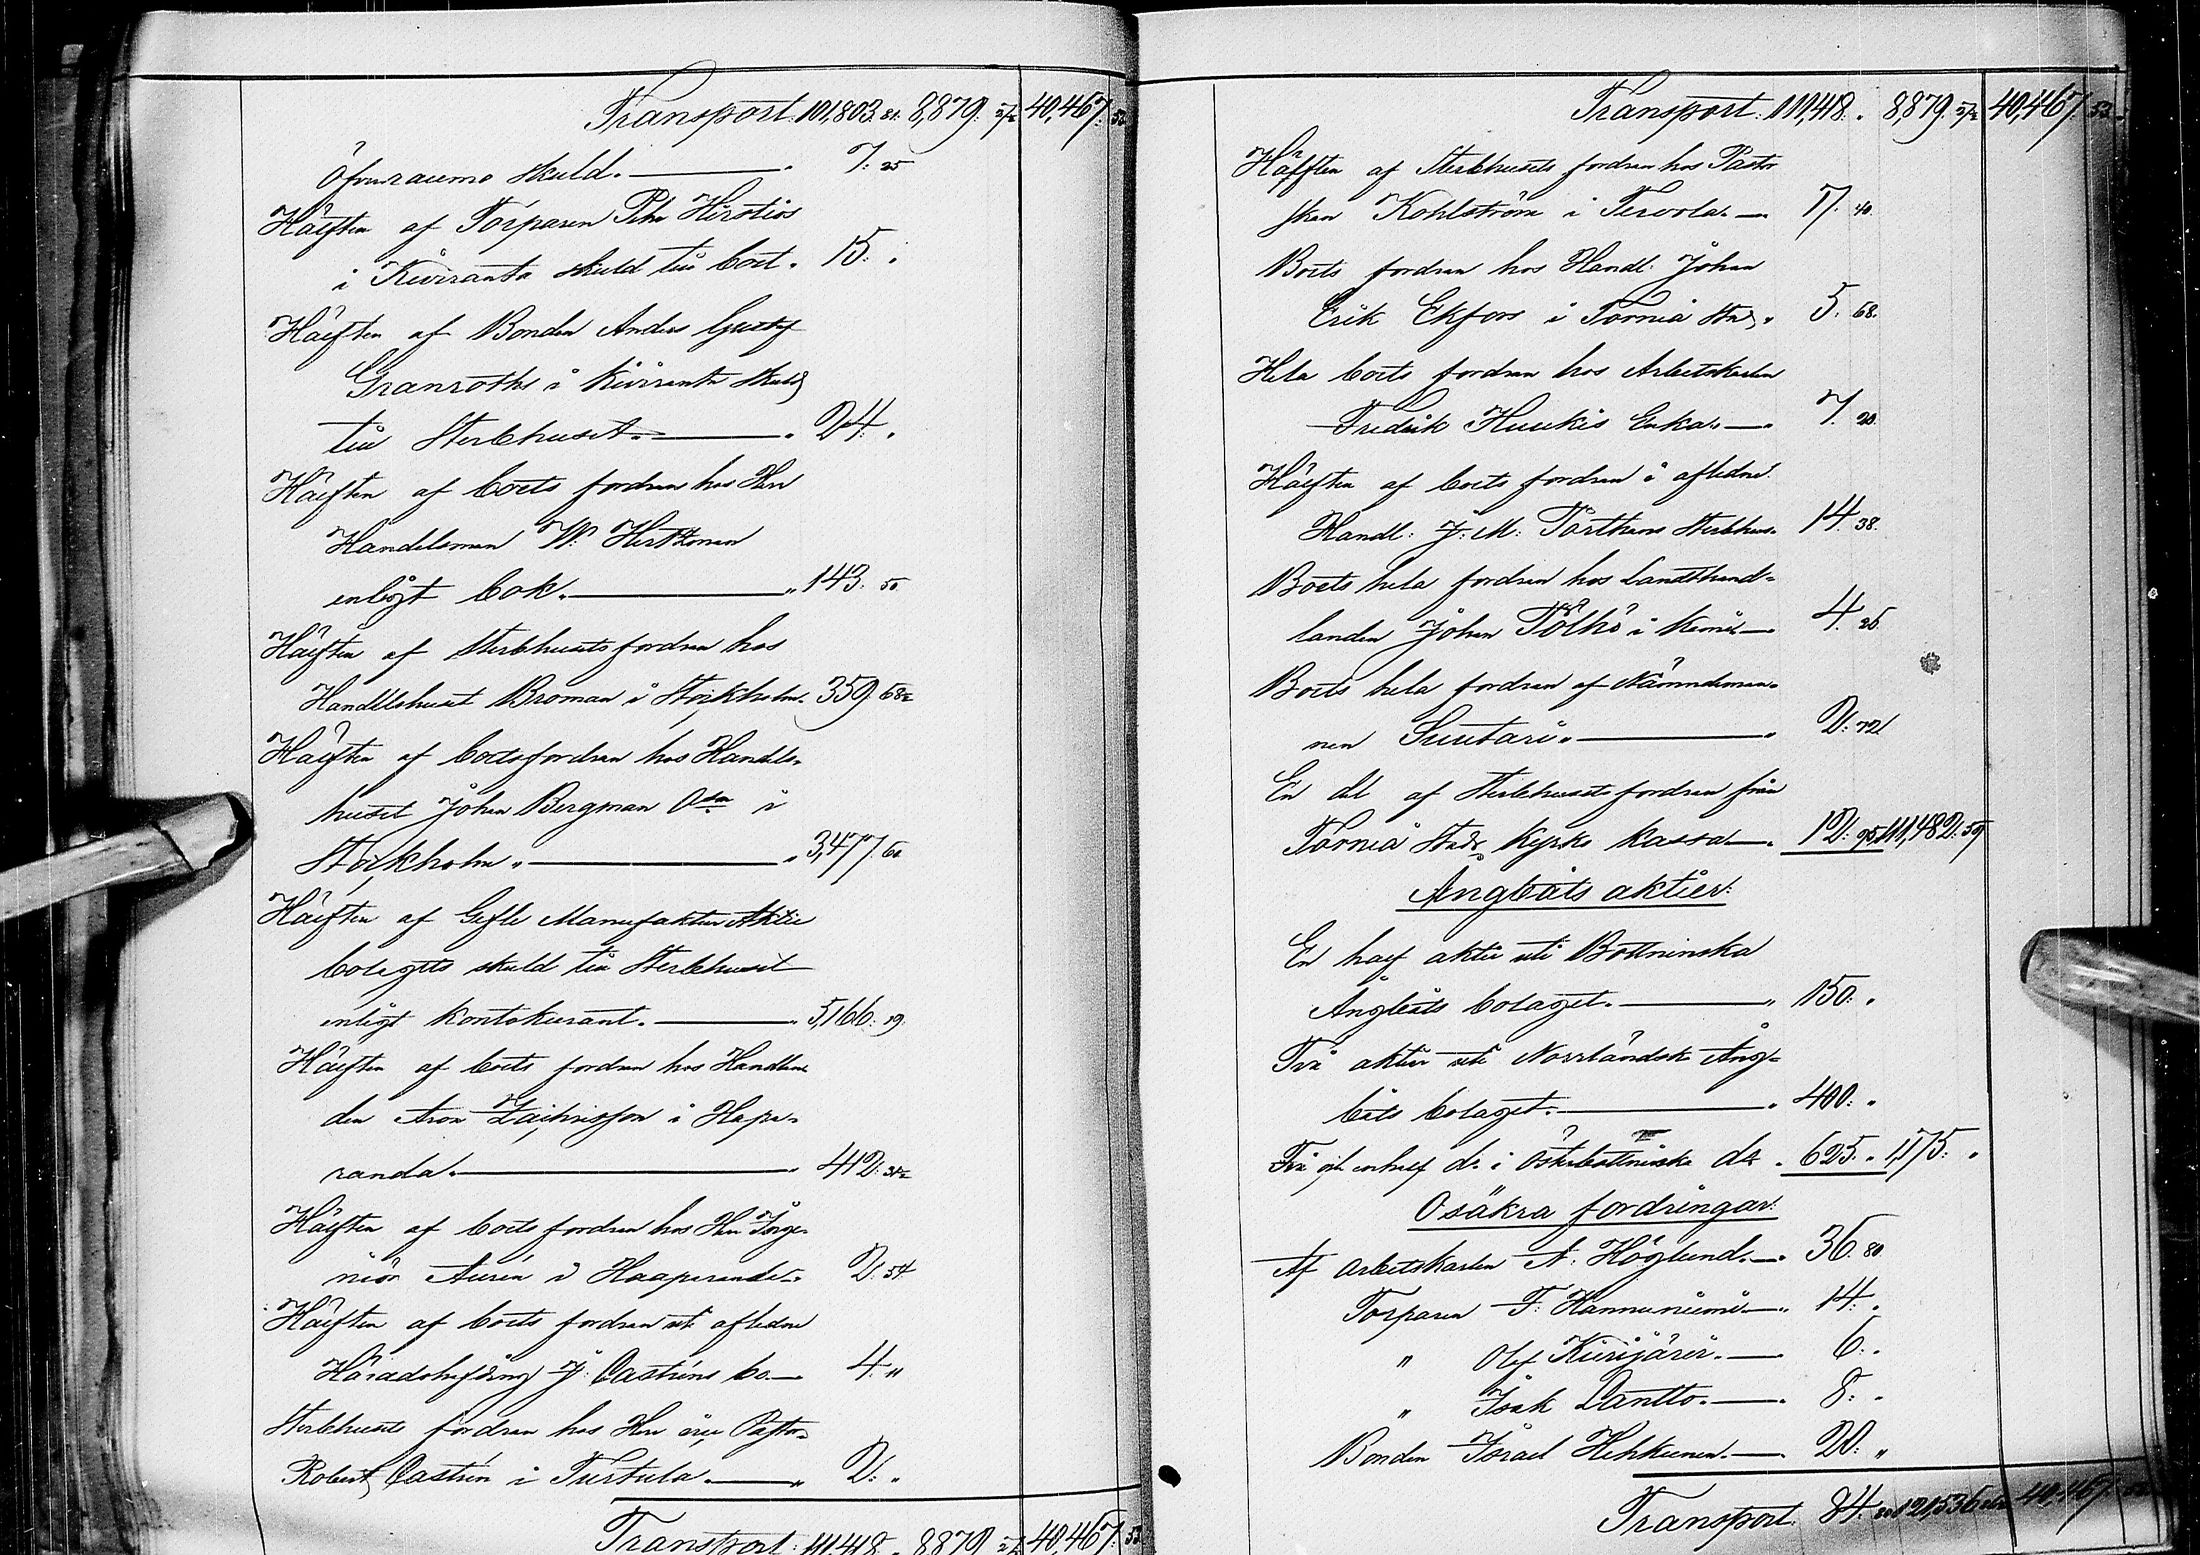 Transport: 101,803. 81. 8,879. 57½ 40,467: 53
Öfvuraumo skuld. 7: 25
Hälften af Torparen Petu Hirstiös
i Kiviranta skuld till boet. 15: .
Hälften af Bonden Anders Gustaf
Granroths i Kiviranta skuld
till Sterbhuset. 24: .
Hälften af boets fordran hos Herr
Handelsman W: Hertzman
enligt bok. 143: 50
Hälften af Sterbhusets fordran hos
Handelshuset Broman i Stockholm. 359: 68½
Hälften af boets fordran hos Handels-
huset Johan Bergman i
Stockholm. 3,477: 60
Hälften af Gefle Manufaktur Aktie
bolagets skuld till Sterbhuset
enligt Kontokurant. 5,166: 19.
Hälften af boets fordran hos Handlan
den Aron Zachrisson i Hapa-
randa. 412: 31½
Hälften af boets fordran hos Herr Inge-
niör Aurén i Haaparanda. 2: 54
Hälften af boets fordran uti aflidne
Häradshöfding J: Castréns bo. 4: "
Sterbhusets fordran hos Herr Pastor
Robert Castrén i Turtula. 2: .
Transport: 111,418. . 8879. 57½ 40,467: 53
Transport: 111,418. . 8,879. 57½ 40,467: 53.
Hälften af Sterbhusets fordran hos Pastor
skan Kohlström i Tervola. 17. 40.
Boets fordran hos Handl: Johan
Erik Ekfors i Torneå stad. 5. 68.
Hela boets fordran hos Arbetskarlen
Fredrik Huukis Enka. 7. 20.
Hälften af boets fordran i aflidne
Handl: J: M: Pörthens Sterbhus. 14. 38.
Boets hela fordran hos Landthand-
landen Johan Pölhö i Kemi 4. 26
Boets hela fordran af Nämndeman-
nen Suutari. 2: 72
En del af Sterbhusets fordran från
Torneå Stads Kyrko kassa. 12: 95 111,482: 59
Ångbåts aktier:
En half aktie uti Bottninska
Ångbåts bolaget. 150: .
Två aktier uti Norrländska Ång-
båts bolaget. 400: .
Två och en half do i Österbottniska do . 625. . 1,175: .
Osäkra fordringar:
Af Arbetskarlen A: Höglund. 36. 80.
Torparen F: Hannuniemi 14: .
" Olof Kurijärvi. 6: .
" Isak Lantto. 8: .
Bonden Israel Hehkunen. 20: "
Transport: 84: 80 121,536 40,467: 53